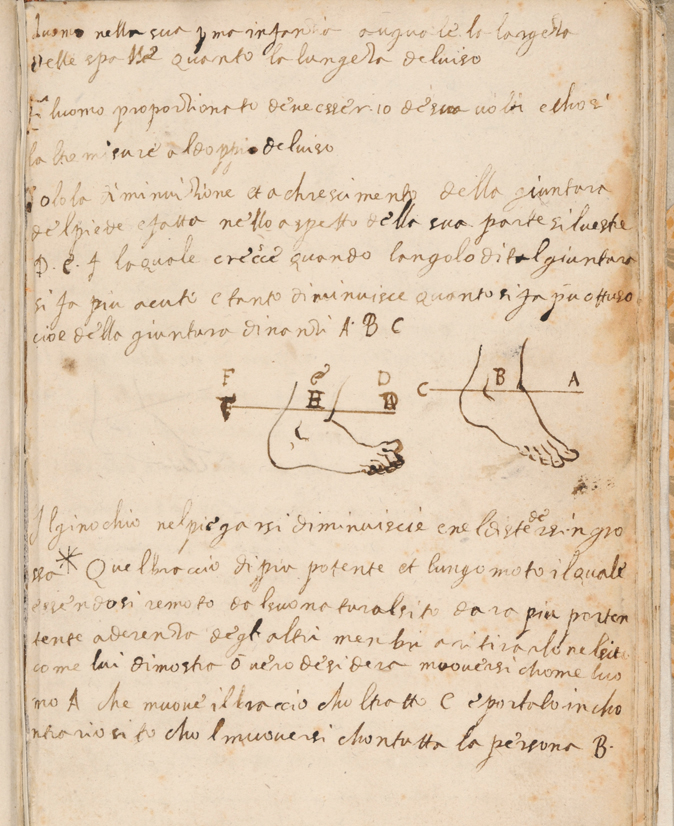 Luomo nella sua pma infantia a uguale la largeza
delle spalle quanto la lungeza deluiso
E luomo proportionato deve esser 10 de sua uolti e chosi
la
misure aldoppio deluiso
Solo la diminuizione et achrescimento della giuntura
delpiede e fatta nello aspetto della sua parte siluestre
D. e. f laquale cresce quando langolo dital giuntura
si fa piu acuto e tanto diminuisce quanto si fa piu ottuso
cioe della giuntura dinanzi A B C
F e D
H
C B A
Il ginochio nel piegarsi diminuiscie e nel distedersi ingro
ssa * Quel braccio di piu potente et lungo moto ilquale
essendosi remoto dalsuo naturalsito dara piu poten
tente aderenza degl altri menbri a ritirarlo nel sito
come lui dimostra o uero desidera muouersi chome luo
mo A che muoue ilbraccio chol tratto C e portalo incho
ntrario sito chol muouersi chontutta la persona B.